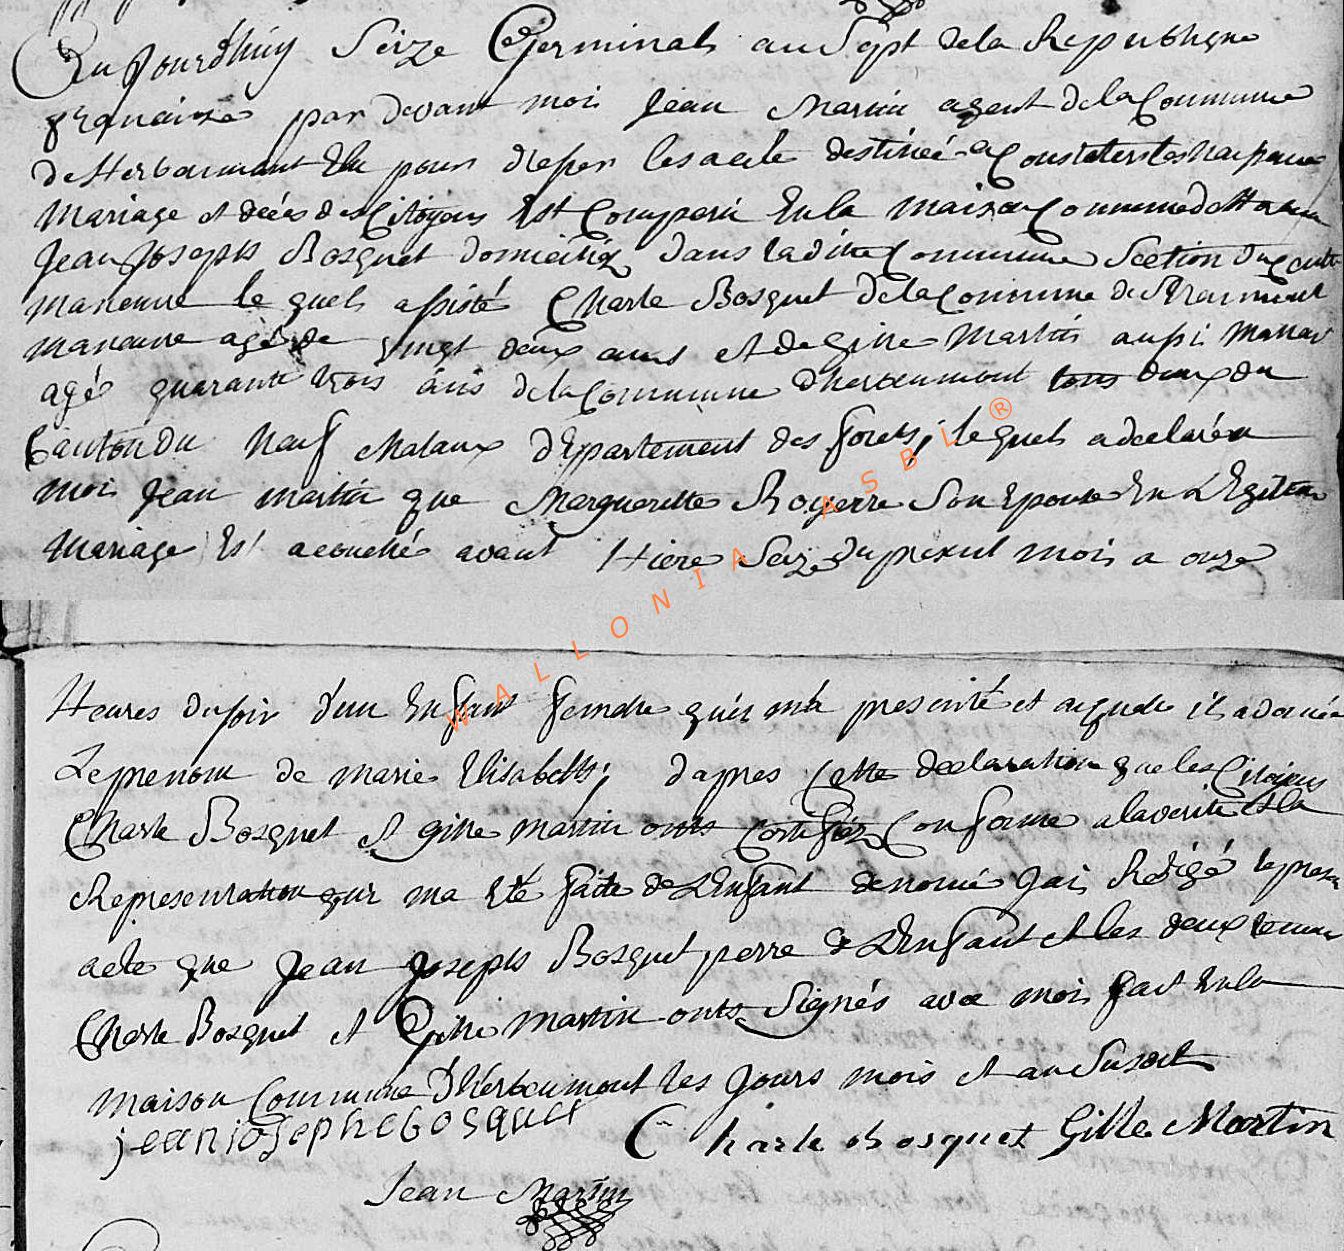 Aujourdhuy Seize Germinals an Sept de la Republique
francaise par devant moi Jean Martin agent de la Commune
de Herbeumont Elu pour dresser les acte destinée a Constater les Naissance
Mariage et décés des Citoyens Est Comparu En la maison Commune
Jean Josephs Bosquet domiciliez dans la ditte Commune Section du
maneuvre le quels assisté Charle Bosquet de la Commune de Straimont
maneuvre agé de vingt deux ans et de gille Martin aussi
agé quarante trois ans de la Commune d'herbeumont tous deux du
Canton du Neuf Chataux departement des forets, le quels a declaré a
moi Jean martin que Margueritte Rogerre Son Epouse En
Mariage Est acouché avant Hiere Seize du presant mois a onze
Heures du soir d'un Enfant femelle qu'il m'a presenté et auquelle il a donnée
Le prenom de marie Elisabeths, dapres Cette declaration que les Citoiens
Charle Bosquet et gille martin onts Certifiéz Conforme a la verité et la
Representation qui ma eté faite de L'Enfant denomé Jai Redigé le presen
acte que Jean Josephs Bosquet perre de L'Enfant et les deux temoin
Charle Bosquet et Gille martin onts Signés avec moi fait En la
maison Commune D'herbeumont les Jours mois et an Susdit
jean josephe bosquet Charle Bosquet Gille Martin
Jean Martin
WALLONIA ASBL ®